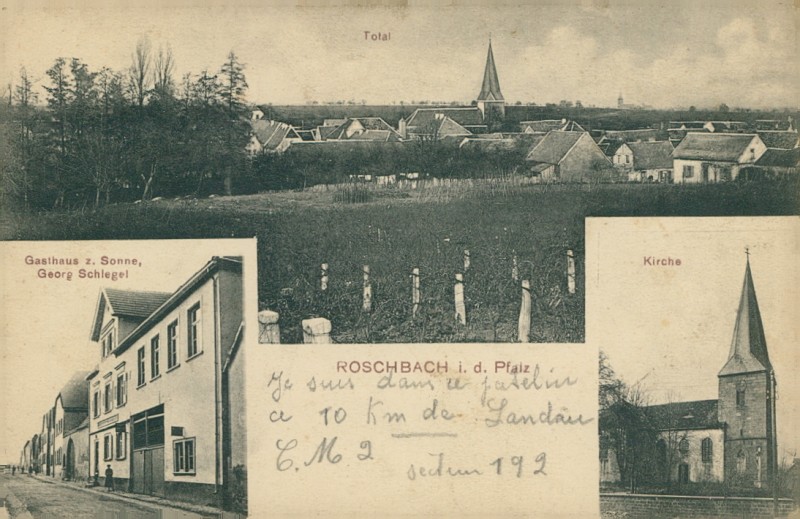 Total
Gasthaus z. Sonne,
Georg Schlegel
Kirche
ROSCHBACH i. d. Pfalz
Je suis dans ce patelin
a 10 Km de Landau
C. M 2
secteur 192